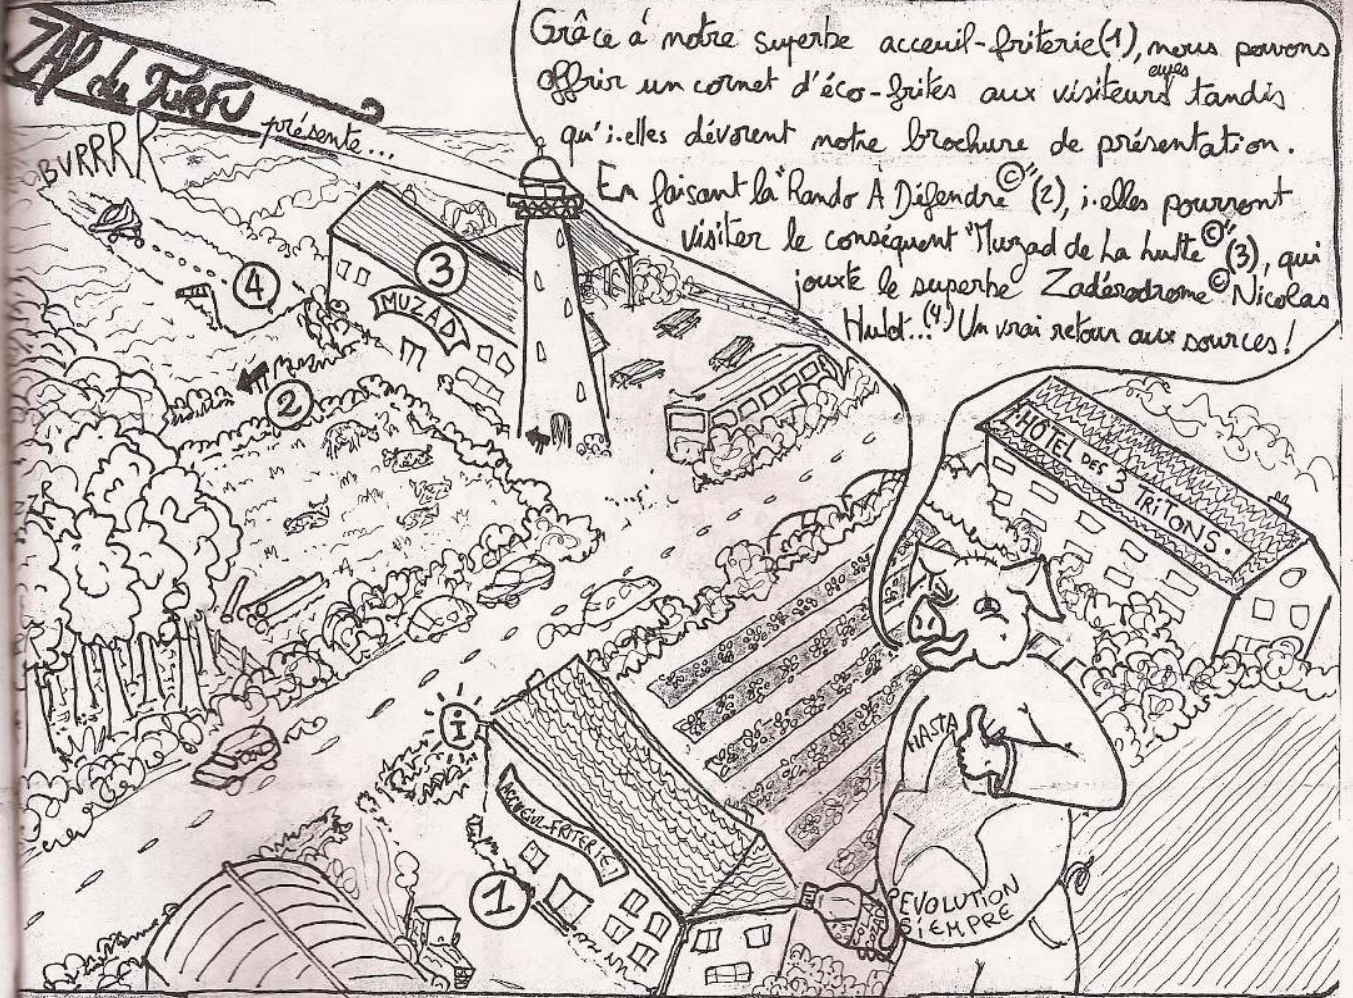 ZAD du TURFU
présente...
Grâce à notre superbe acceuil-friterie (1), nous pouvons
offrir un cornet d'éco-frites aux visiteurs euses tandis
qu'i.elles dévorent notre brochure de présentation.
En faisant la "Rando À Défendre©" (2), i.elles pourront
visiter le conséquent "Muzad de La hutte©" (3), qui
jouxte le superbe Zadérodrome© Nicolas
Hulot...(4) Un vrai retour aux sources!
BVRRRR
4
3
MUZAD
2
HÔTEL DES 3 TRITONS.
i
ACCUEUIL-FRITERIE
1
HASTA
REVOLUTION
SIEMPRE